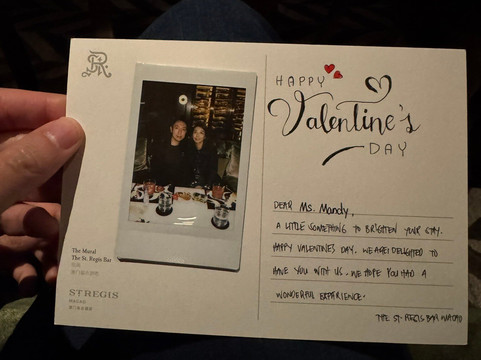 HAPPY
Valentine's
DAY
DEAR Ms. Mandy,
A LITTLE SOMETHING TO BRIGHTEN YOUR STAY.
HAPPY VALENTINES DAY. WE ARE DELIGHTED TO
HAVE YOU WITH US. WE HOPE YOU HAD A
WONDERFUL EXPERIENCE.
THE ST. REGIS BAR MACAU
The Mural
The St. Regis Bar
ST REGIS